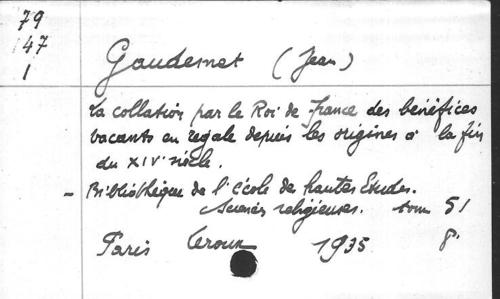 79
147
1
Gaudemet (Jean)
La collation par le Roi de France des bénéfices
vacants en regale depuis les origines à la fin
du XIVe siècle.
- Bibliothèque de l'école de hautes Etudes.
Sciences religieuses. tome 51
Paris Leroux 1935 8°